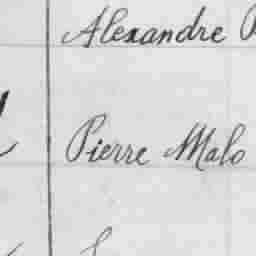 Alexandre
Pierre Malo